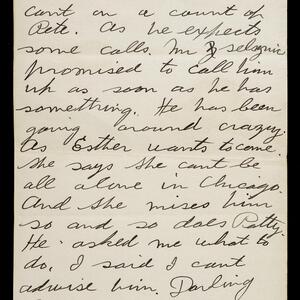 can't on a count of
Pete. As he expects
some calls. Mr Selsnic
promised to call him
uh as soon as he has
something. He has been
going around crazy.
As Esther wants to come.
She says she can't be
all alone in Chicago.
And she mises him
so and so does Patty.
He asked me what to
do, I said I can't
advise him. Darling